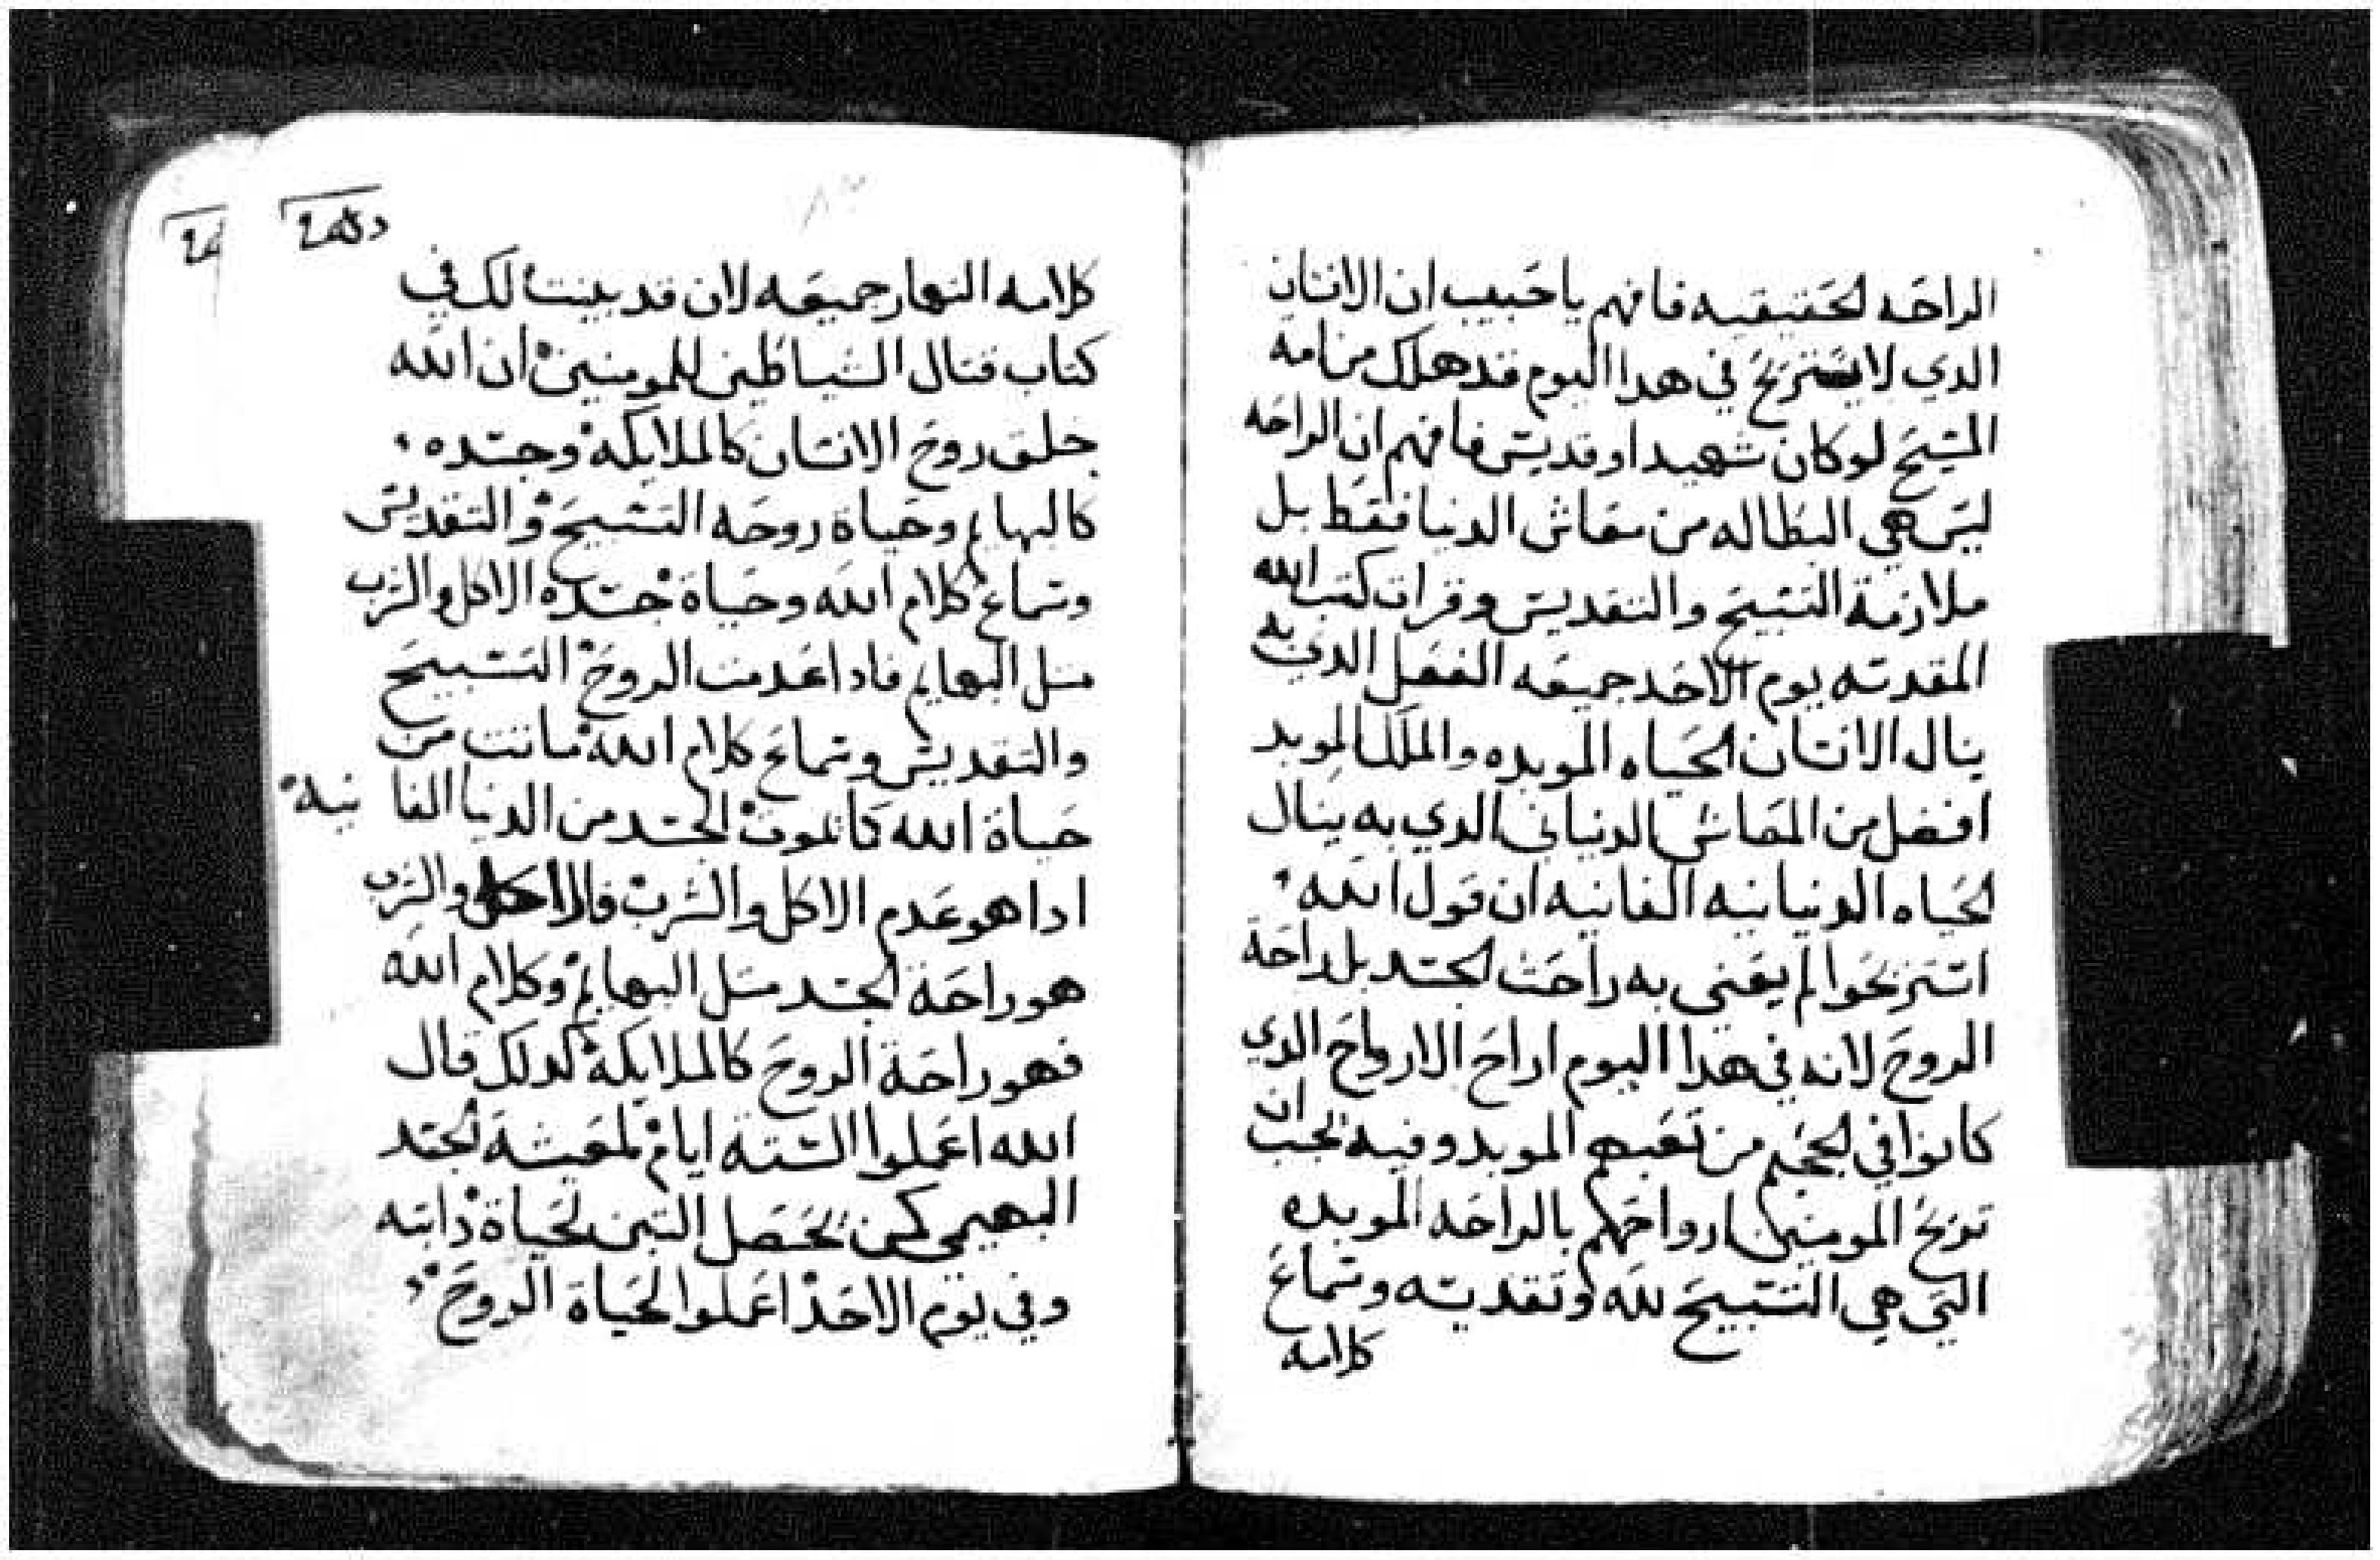 الراحه الحقيقيه فافهم يا حبيب ان الانسان
الدي لا يستريح في هدا اليوم فقد هلك من امه
المسيح لو كان شهيدا او قديس فافهم ان الراحه
ليس هي البطاله من معاش الدنيا فقط بل
ملازمة التسبيح والتقديس وقرات كتب الله
المقدسه يوم الاحد جميعه الفصل الدي به
ينال الانسان الحياه الموبده والملك الموبد
افضل من المعاش الدنياني الدي به ينال
الحياه الدنيانيه الفانيه ان قول الله
استريحوا لم يعني به راحت الجسد بل راحة
الروح لانه في هدا اليوم اراح الارواح الدي
كانوا في الجحيم من تعبهم الموبد وفيه يجب ان
تريح المومنين ارواحهم بالراحه الموبده
التي هي التسبيح لله وتقديسه وسماع
كلامه
كلامه النهار جميعه لان قد بينت لك في
كتاب قتال الشياطين للمومنين ان الله
خلق روح الانسان كالملايكة وجسده
كالبهايم وحياة روحه التسبيح والتقديس
وسماع كلام الله وحياة جسده الاكل والشرب
متل البهايم فادا عدمت الروح التسبيح
والتقديس وسماع كلام الله ماتت من
حياة الله كما تموت الجسد من الدنيا الفانيه
ادا هو عدم الاكل والشرب فالاكل والشرب
هو راحة الجسد متل البهايم وكلام الله
فهو راحة الروح كالملايكة كدلك قال
الله اعملوا الستة ايام لمعيشة الجسد
البهيمي كمن يحصل التبن لحياة دابته
وفي يوم الاحد اعملوا لحياة الروح